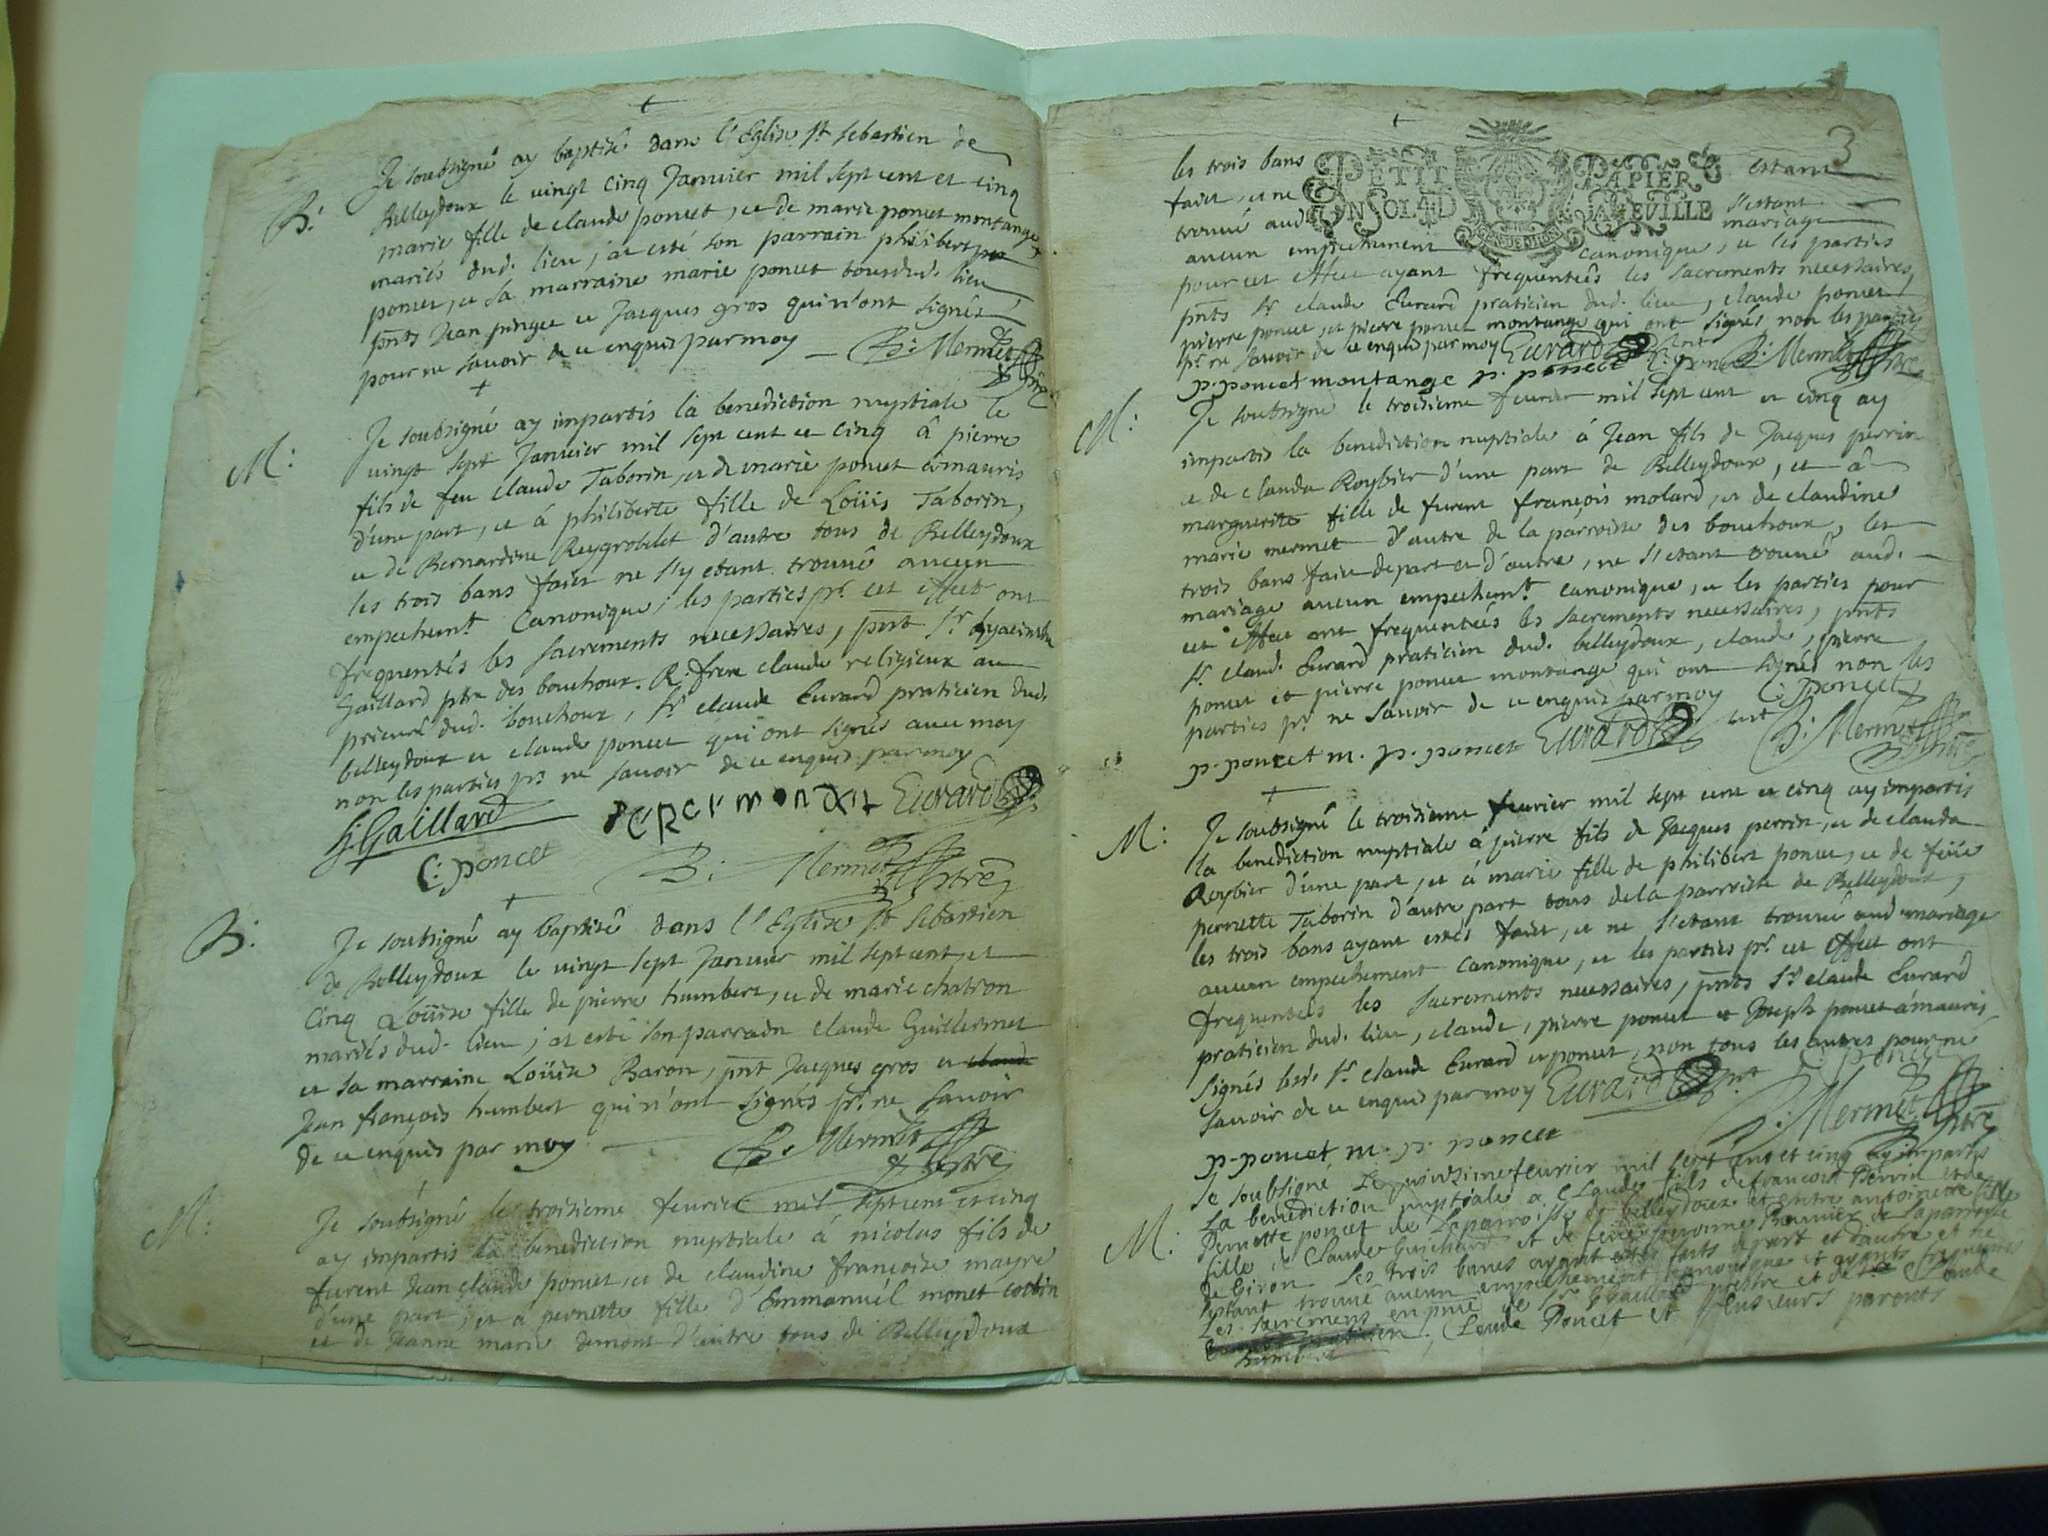 Je soubsigné ay baptisé dans l'Eglise st sebastien de
B:
Belleydoux le vingt cinq Janvier mil sept cent et cinq
marie fille de claude poncet, et de marie poncet montange
mariés dud. lieu, at esté son parrain philibert
poncet, et sa marraine marie poncet tous dud. lieu
pnts Jean pinget et Jacques gros qui n'ont signés
pour ne savoir de ce enquis par moy B: Mermet
M:
Je soubsigné ay impartis la benediction nuptiale le
vingt sept Janvier mil sept cent et cinq â pierre
fils de feu claude Taborin, et de marie poncet émauris
d'une part, et á philiberte fille de Loüis Taborin,
et de Bernardine Reygrobelet d'autre tous de Belleydoux
les trois bans faict ne s'y etant trouvé aucun
empechemt canonique, les parties pr. cet effect ont
frequentés les sacrements necessaires, pnt sr. hyacinthe
Gaillard ptre des bouchoux. R. frere claude religieux au
prieuré dud. bouchoux, sr claude Eurard praticien dud.
belleydoux et claude poncet qui ont signés avec moy
non les parties pr. ne savoir de ce enquis par moy
h: Gaillard Eurard
C: poncet B: Mermet ptre
B:
Je soubsigné ay baptisé dans l'Eglise st sebastien
de Belleydoux le vingt sept Janvier mil sept cent, et
cinq Loüise fille de pierre humbert, et de marie chatron
mariés dud. lieu, at esté son parrain claude Guillermet
et sa marraine Loüise Baron, pnt Jacques gros et claude
Jean françois humbert qui n'ont signés pr. ne savoir
de ce enquis par moy B. Mermet ptre
M:
Je soubsigné le troisieme fevrier mil sept cent et cinq
ay impartis la benediction nuptiale á nicolas fils de
furent Jean claude poncet, et de claudine françoise mayre
d'une part, et a pernette fille d'Emmanuél monet
et de Jeanne marie demont d'autre tous de Belleydoux
3
PETIT PAPIER
EN SOL LA FEVILLE
GENERALITE DE DIJON
les trois bans estant
faict, et ne s'estant
trouvé aud. mariage
aucun empechement canonique, et les parties
pour cet effect ayant frequentées les sacrements necessaires,
pnts sr. claude Eurard praticien dud. lieu, claude poncet,
pierre poncet, et pierre poncet montange qui ont signés non les parties
pr. ne savoir de ce enquis par moy Eurard B: Mermet ptre
p. poncet montange p. poncet
M:
Je soubsigné le troisieme fevrier mil sept cent et cinq ay
impartis la benediction nuptiale á Jean fils de Jacques perrin
et de clauda Roybier d'une part de Belleydoux, et â
marguerite fille de furent françois molard, et de claudine
marie mermet d'autre de la parroisse des bouchoux, les
trois bans faict de part et d'autre, ne s'etant trouvé aud.
mariage aucun empechemt. canonique, et les parties pour
cet effect ont frequentées les sacrements necessaires, pnts
sr. claud. Eurard praticien dud. belleydoux, claude, pierre
poncet et pierre poncet montange qui ont signés non les
parties pr. ne savoir de ce enquis par moy C: poncet
p. poncet m. p. poncet Eurard B: Mermet ptre
M:
Je soubsigné le troisieme fevrier mil sept cent et cinq ay impartis
la benediction nuptiale á pierre fils de Jacques perrin, et de clauda
Roybier d'une part, et á marie fille de philibert poncet, et de feüe
pernette Taborin d'autre part tous de la parroisse de Belleydoux,
les trois bans ayant estés faict, et ne s'etant trouvé aud. mariage
aucun empechement canonique, et les parties pr. cet effect ont
frequentées les sacrements necessaires, pnts sr. claude Eurard
praticien dud. lieu, claude, pierre poncet et Joseph poncet émauris
signés lesd. sr. claude Eurard et poncet, non tous les autres pour ne
savoir de ce enquis par moy Eurard C poncet
p. poncet m. p. poncet B: Mermet ptre
M:
Je soubsigné Le quinzime fevrier mil sept cent et cinq ay impartis
La benediction nuptiale a Claude fils de francois Perrin et de
Pernette poncet de Laparroisse de belleydoux et entre antoinette fille
fille de Claude Guichard et de feue de Laparroisse
de Giron Les trois bancs ayant estés faits de part et dautre et ne
sestant trouvé aucun empechement canonique et ayants frequentés
Les sacremens en pnce de sr. h Gaillard prebtre et de sr. Claude
Claude Poncet et plusieurs parents
humbert